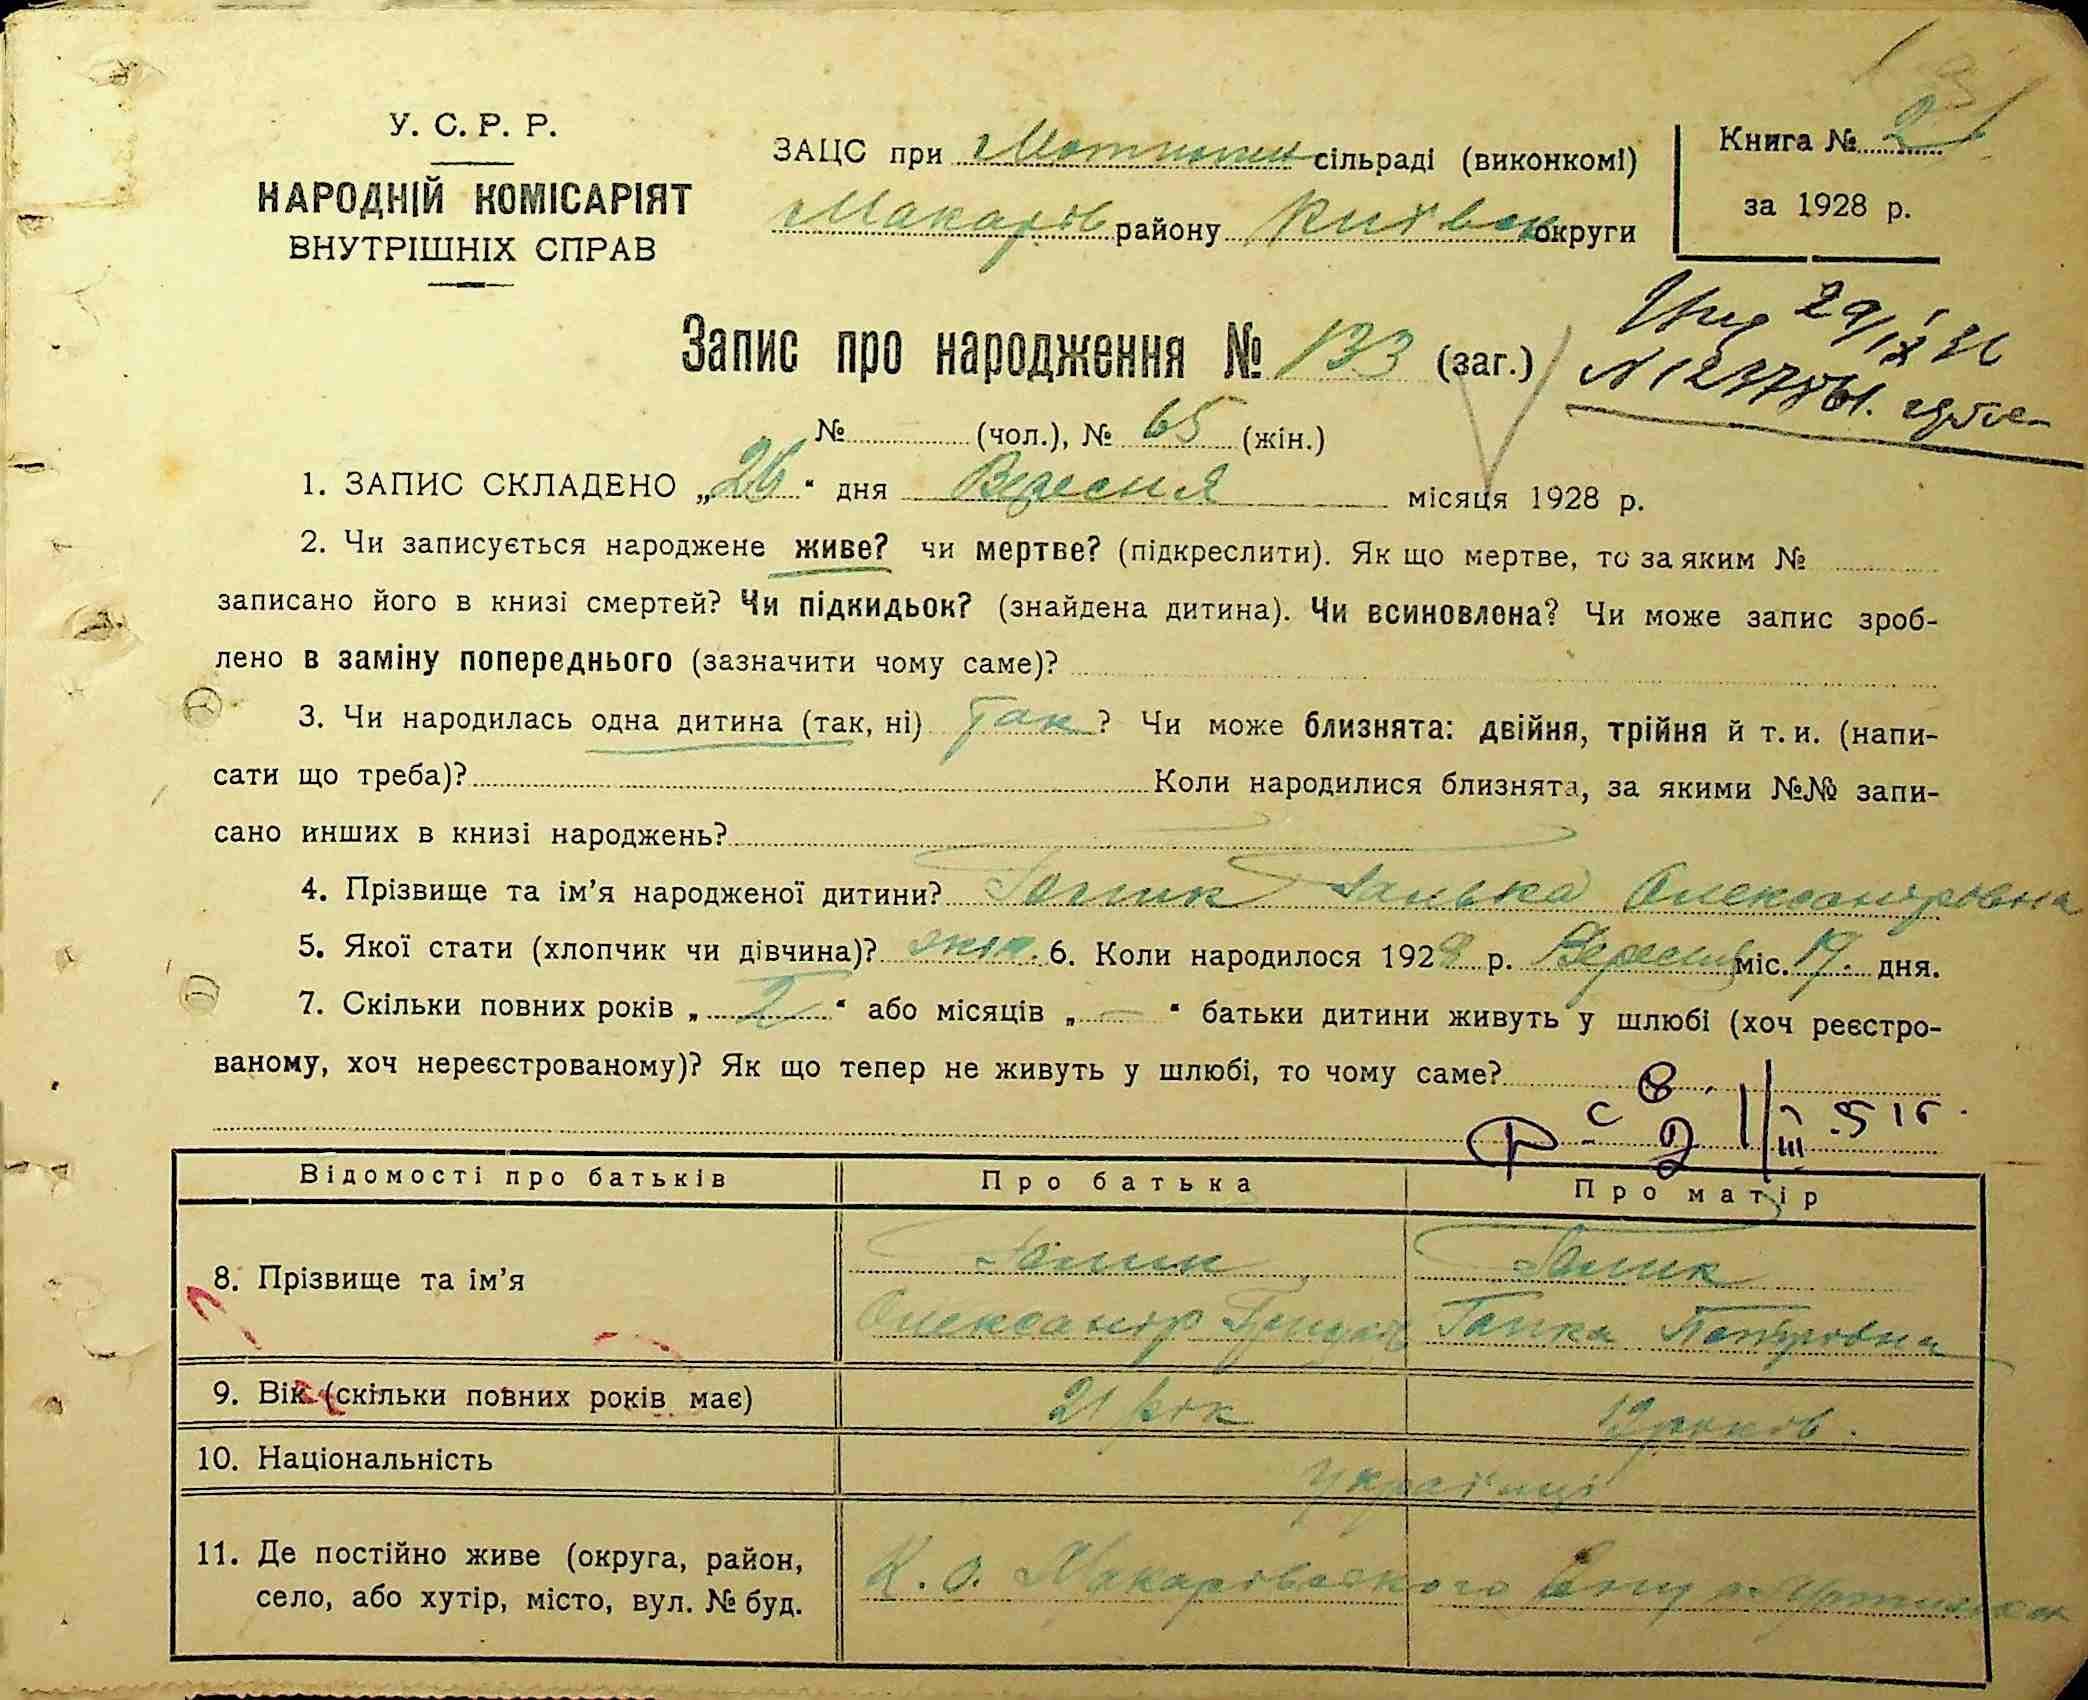 У. С. Р. Р.
НАРОДНІЙ КОМІСАРІЯТ
ВНУТРІШНІХ СПРАВ
ЗАЦС при сільраді (виконкомі)
Макарів району Київськ округи
Книга № 2
за 1928 р.
Запис про народження № 133 (заг.)
29/IX
№ (чол.), № 65 (жін.)
1. ЗАПИС СКЛАДЕНО „26“ дня Вересня місяця 1928 р.
2. Чи записується народжене живе? чи мертве? (підкреслити). Як що мертве, то за яким №
записано його в книзі смертей? Чи підкидьок? (знайдена дитина). Чи всиновлена? Чи може запис зроб-
лено в заміну попереднього (зазначити чому саме)?
3. Чи народилась одна дитина (так, ні) Так? Чи може близнята: двійня, трійня й т. и. (напи-
сати що треба)? Коли народилися близнята, за якими №№ запи-
сано инших в книзі народжень?
4. Прізвище та ім’я народженої дитини? Галька Олександровна
5. Якої стати (хлопчик чи дівчина)? 6. Коли народилося 1928 р. Вересня міс. 19. дня.
7. Скільки повних років „2“ або місяців „—“ батьки дитини живуть у шлюбі (хоч реєстро-
ваному, хоч нереєстрованому)? Як що тепер не живуть у шлюбі, то чому саме?
Відомості про батьків Про батька Про матір
8. Прізвище та ім’я
Олександр Гапка Петровна
9. Вік (скільки повних років має) 21 рік 19 років.
10. Національність Українці
11. Де постійно живе (округа, район,
село, або хутір, місто, вул. № буд. К. О. Макарівського